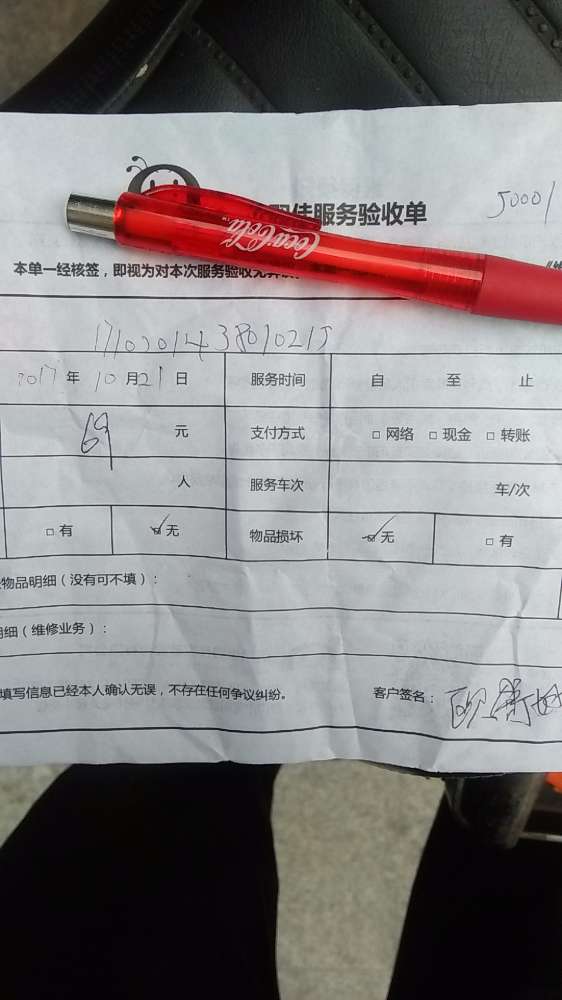 佳服务验收单
J0001
Coca-Cola
本单一经核签，即视为对本次服务验收无异议
1710201438010215
2017 年 10 月 21 日 服务时间 自 至 止
69 元 支付方式 □ 网络 □ 现金 □ 转账
人 服务车次 车/次
□ 有 ☑ 无 物品损坏 ☑ 无 □ 有
物品明细（没有可不填）：
明细（维修业务）：
填写信息已经本人确认无误，不存在任何争议纠纷。 客户签名：